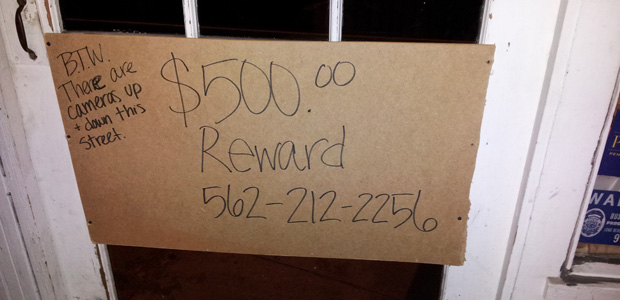 B.T.W.
There are
cameras up
+ down this
street.
$500.00
Reward
562-212-2256
WA